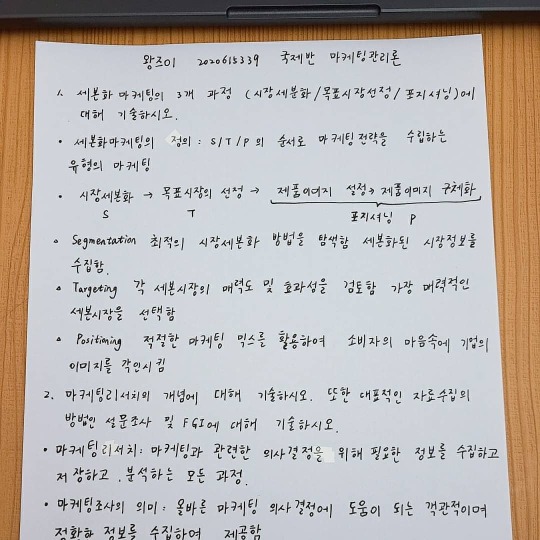 왕즈이 2020615339 국제반 마케팅관리론
1. 세분화 마케팅의 3개 과정 (시장세분화/목표시장선정/포지셔닝)에
대해 기술하시오.
• 세분화마케팅의 정의 : S/T/P의 순서로 마케팅전략을 수립하는
유형의 마케팅
• 시장세분화 → 목표시장의 선정 → 제품이미지 설정 → 제품이미지 구체화
S T 포지셔닝 P
Segmentation 최적의 시장세분화 방법을 탐색함 세분화된 시장정보를
수집함.
Targeting 각 세분시장의 매력도 및 효과성을 검토함 가장 매력적인
세분시장을 선택함
Positioning 적절한 마케팅 믹스를 활용하여 소비자의 마음속에 기업의
이미지를 각인시킴
2. 마케팅리서치의 개념에 대해 기술하시오. 또한 대표적인 자료수집의
방법인 설문조사 및 FGI에 대해 기술하시오.
• 마케팅리서치 : 마케팅과 관련한 의사결정을 위해 필요한 정보를 수집하고
저장하고, 분석하는 모든 과정.
• 마케팅조사의 의미 : 올바른 마케팅 의사결정에 도움이 되는 객관적이며
정확한 정보를 수집하여 제공함